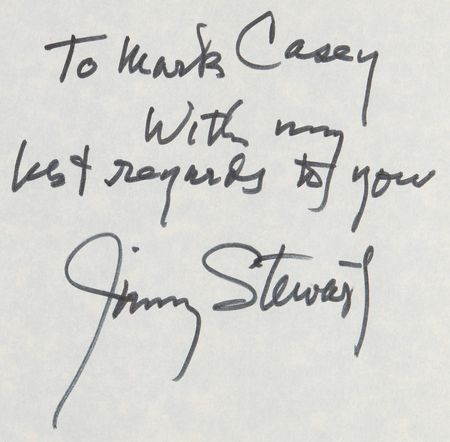 To Mark Casey
With my
best regards to you
Jimmy Stewart